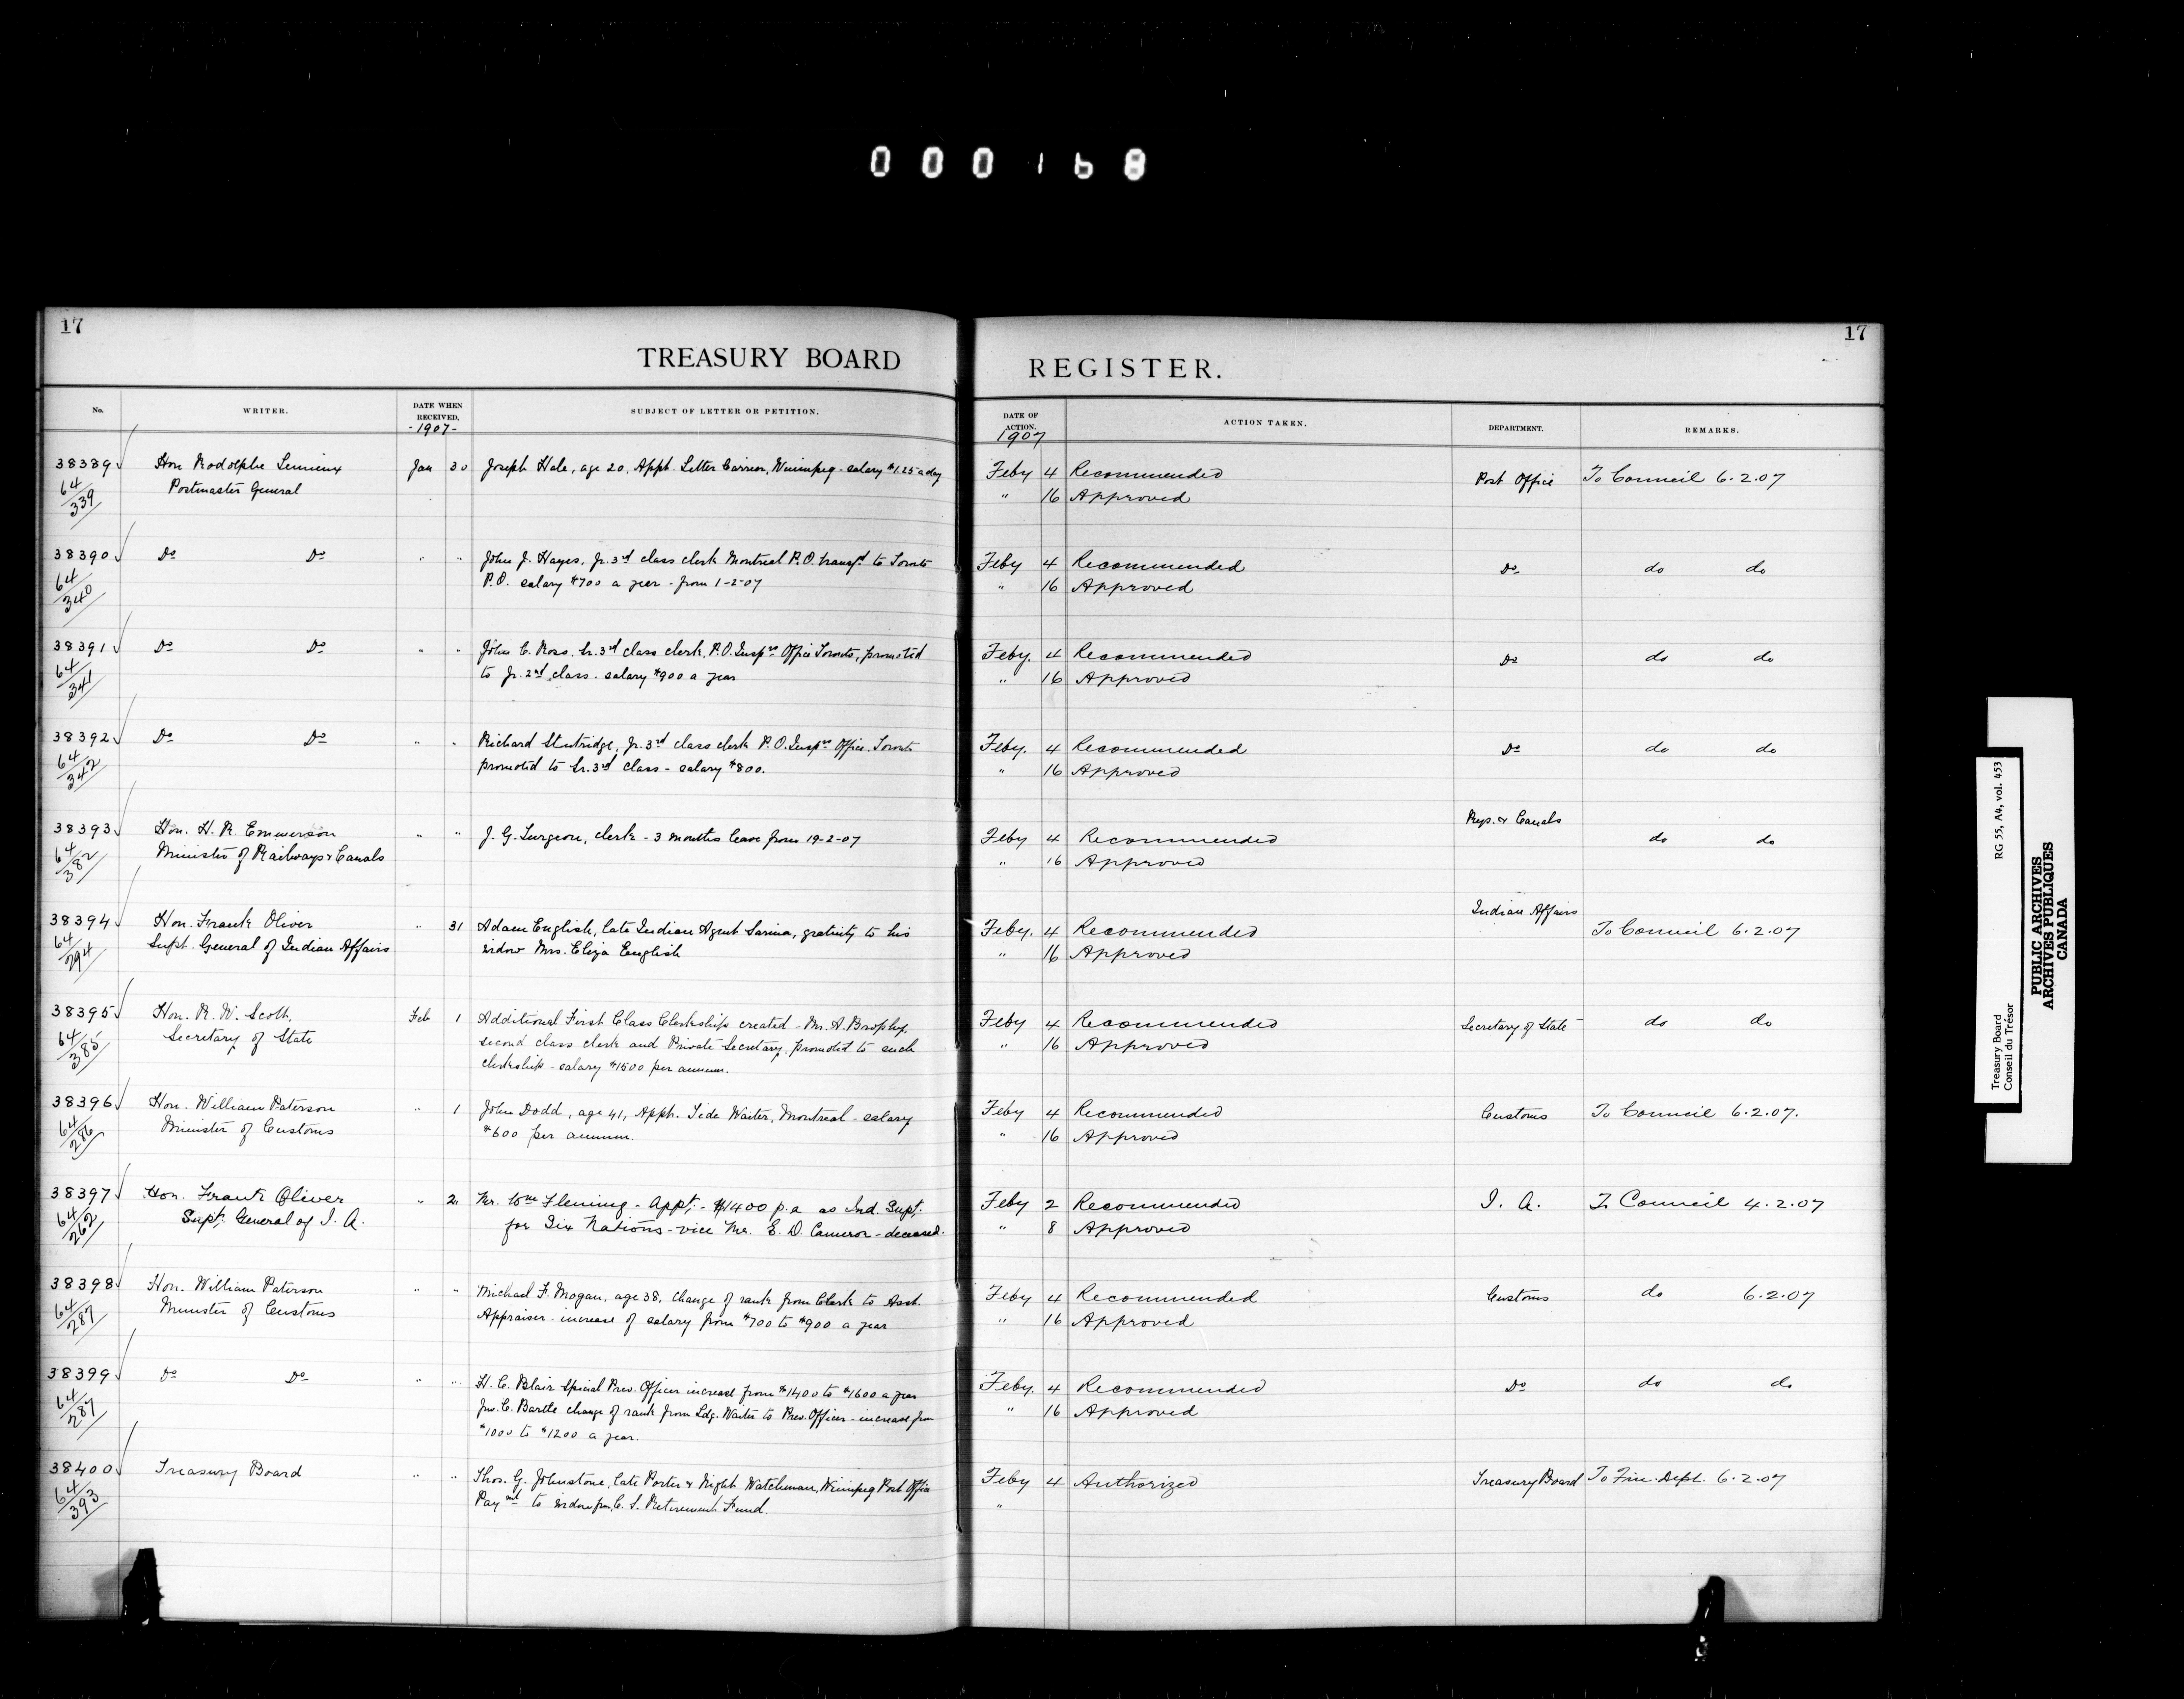 000168
17
17
TREASURY BOARD REGISTER.
No. WRITER. DATE WHEN RECEIVED. SUBJECT OF LETTER OR PETITION. DATE OF ACTION. ACTION TAKEN. DEPARTMENT. REMARKS.
-1907- 1907
38389 Hon Rodolphe Lemieux Jan 30 Joseph Hale, age 20, Appt. Letter Carrier, Winnipeg - salary $1.25 a day Feby 4 Recommended Post Office To Council 6.2.07
64/339 Postmaster General " 16 Approved
38390 Do Do " " John J. Hayes, Jr. 3rd class clerk Montreal P.O. transfd to Toronto Feby 4 Recommended Do do do
64/340 P.O. salary $700 a year - from 1-2-07 " 16 Approved
38391 Do Do " " John C. Ross, Sr. 3rd class clerk, P.O. Insprs Office Toronto, promoted Feby. 4 Recommended Do do do
64/341 to Jr. 2nd class - salary $900 a year " 16 Approved
38392 Do Do " " Richard Stutridge, Jr. 3rd class clerk P.O. Insprs Office. Toronto Feby. 4 Recommended Do do do
64/342 promoted to Sr. 3rd class - salary $800. " 16 Approved
38393 Hon. H. R. Emmerson " " J. G. Turgeon, clerk - 3 months leave from 19-2-07 Feby 4 Recommended Rys. & Canals do do
64/382 Minister of Railways & Canals " 16 Approved
38394 Hon. Frank Oliver " 31 Adam English, late Indian Agent Sarnia, gratuity to his Feby. 4 Recommended Indian Affairs To Council 6.2.07
64/294 Supt. General of Indian Affairs widow Mrs. Eliza English " 16 Approved
38395 Hon. R. W. Scott, Feb 1 Additional First Class Clerkship created - Mr. A. Brophy, Feby 4 Recommended Secretary of State do do
64/385 Secretary of State second class clerk and Private Secretary promoted to such " 16 Approved
clerkship - salary $1500 per annum.
38396 Hon. William Paterson " 1 John Dodd, age 41, Appt. Tide Waiter, Montreal - salary Feby 4 Recommended Customs To Council 6.2.07.
64/286 Minister of Customs $600 per annum. " 16 Approved
38397 Hon. Frank Oliver " 2 Mr. Wm Fleming - Appt. - $1400 p.a as Ind. Supt. Feby 2 Recommended I. A. To Council 4.2.07
64/262 Supt. General of I. A. for Six Nations - vice Mr. E. D. Cameron - deceased. " 8 Approved
38398 Hon. William Paterson " " Michael F. Mogan, age 38, change of rank from Clerk to Asst. Feby 4 Recommended Customs do 6.2.07
64/287 Minister of Customs Appraiser - increase of salary from $700 to $900 a year " 16 Approved
38399 Do Do " " H. C. Blair Special Prev. Officer increase from $1400 to $1600 a year Feby. 4 Recommended Do do do
64/287 Jno. C. Bartle change of rank from Ldg. Waiter to Prev. Officer - increase from " 16 Approved
$1000 to $1200 a year.
38400 Treasury Board " " Thos. G. Johnstone, late Porter & Night Watchman, Winnipeg Post Office Feby 4 Authorized Treasury Board To Fin. Dept. 6.2.07
64/393 Paymt to widow from C. S. Retirement Fund. "
Treasury Board RG 55, A4, vol. 453
Conseil du Trésor
PUBLIC ARCHIVES
ARCHIVES PUBLIQUES
CANADA